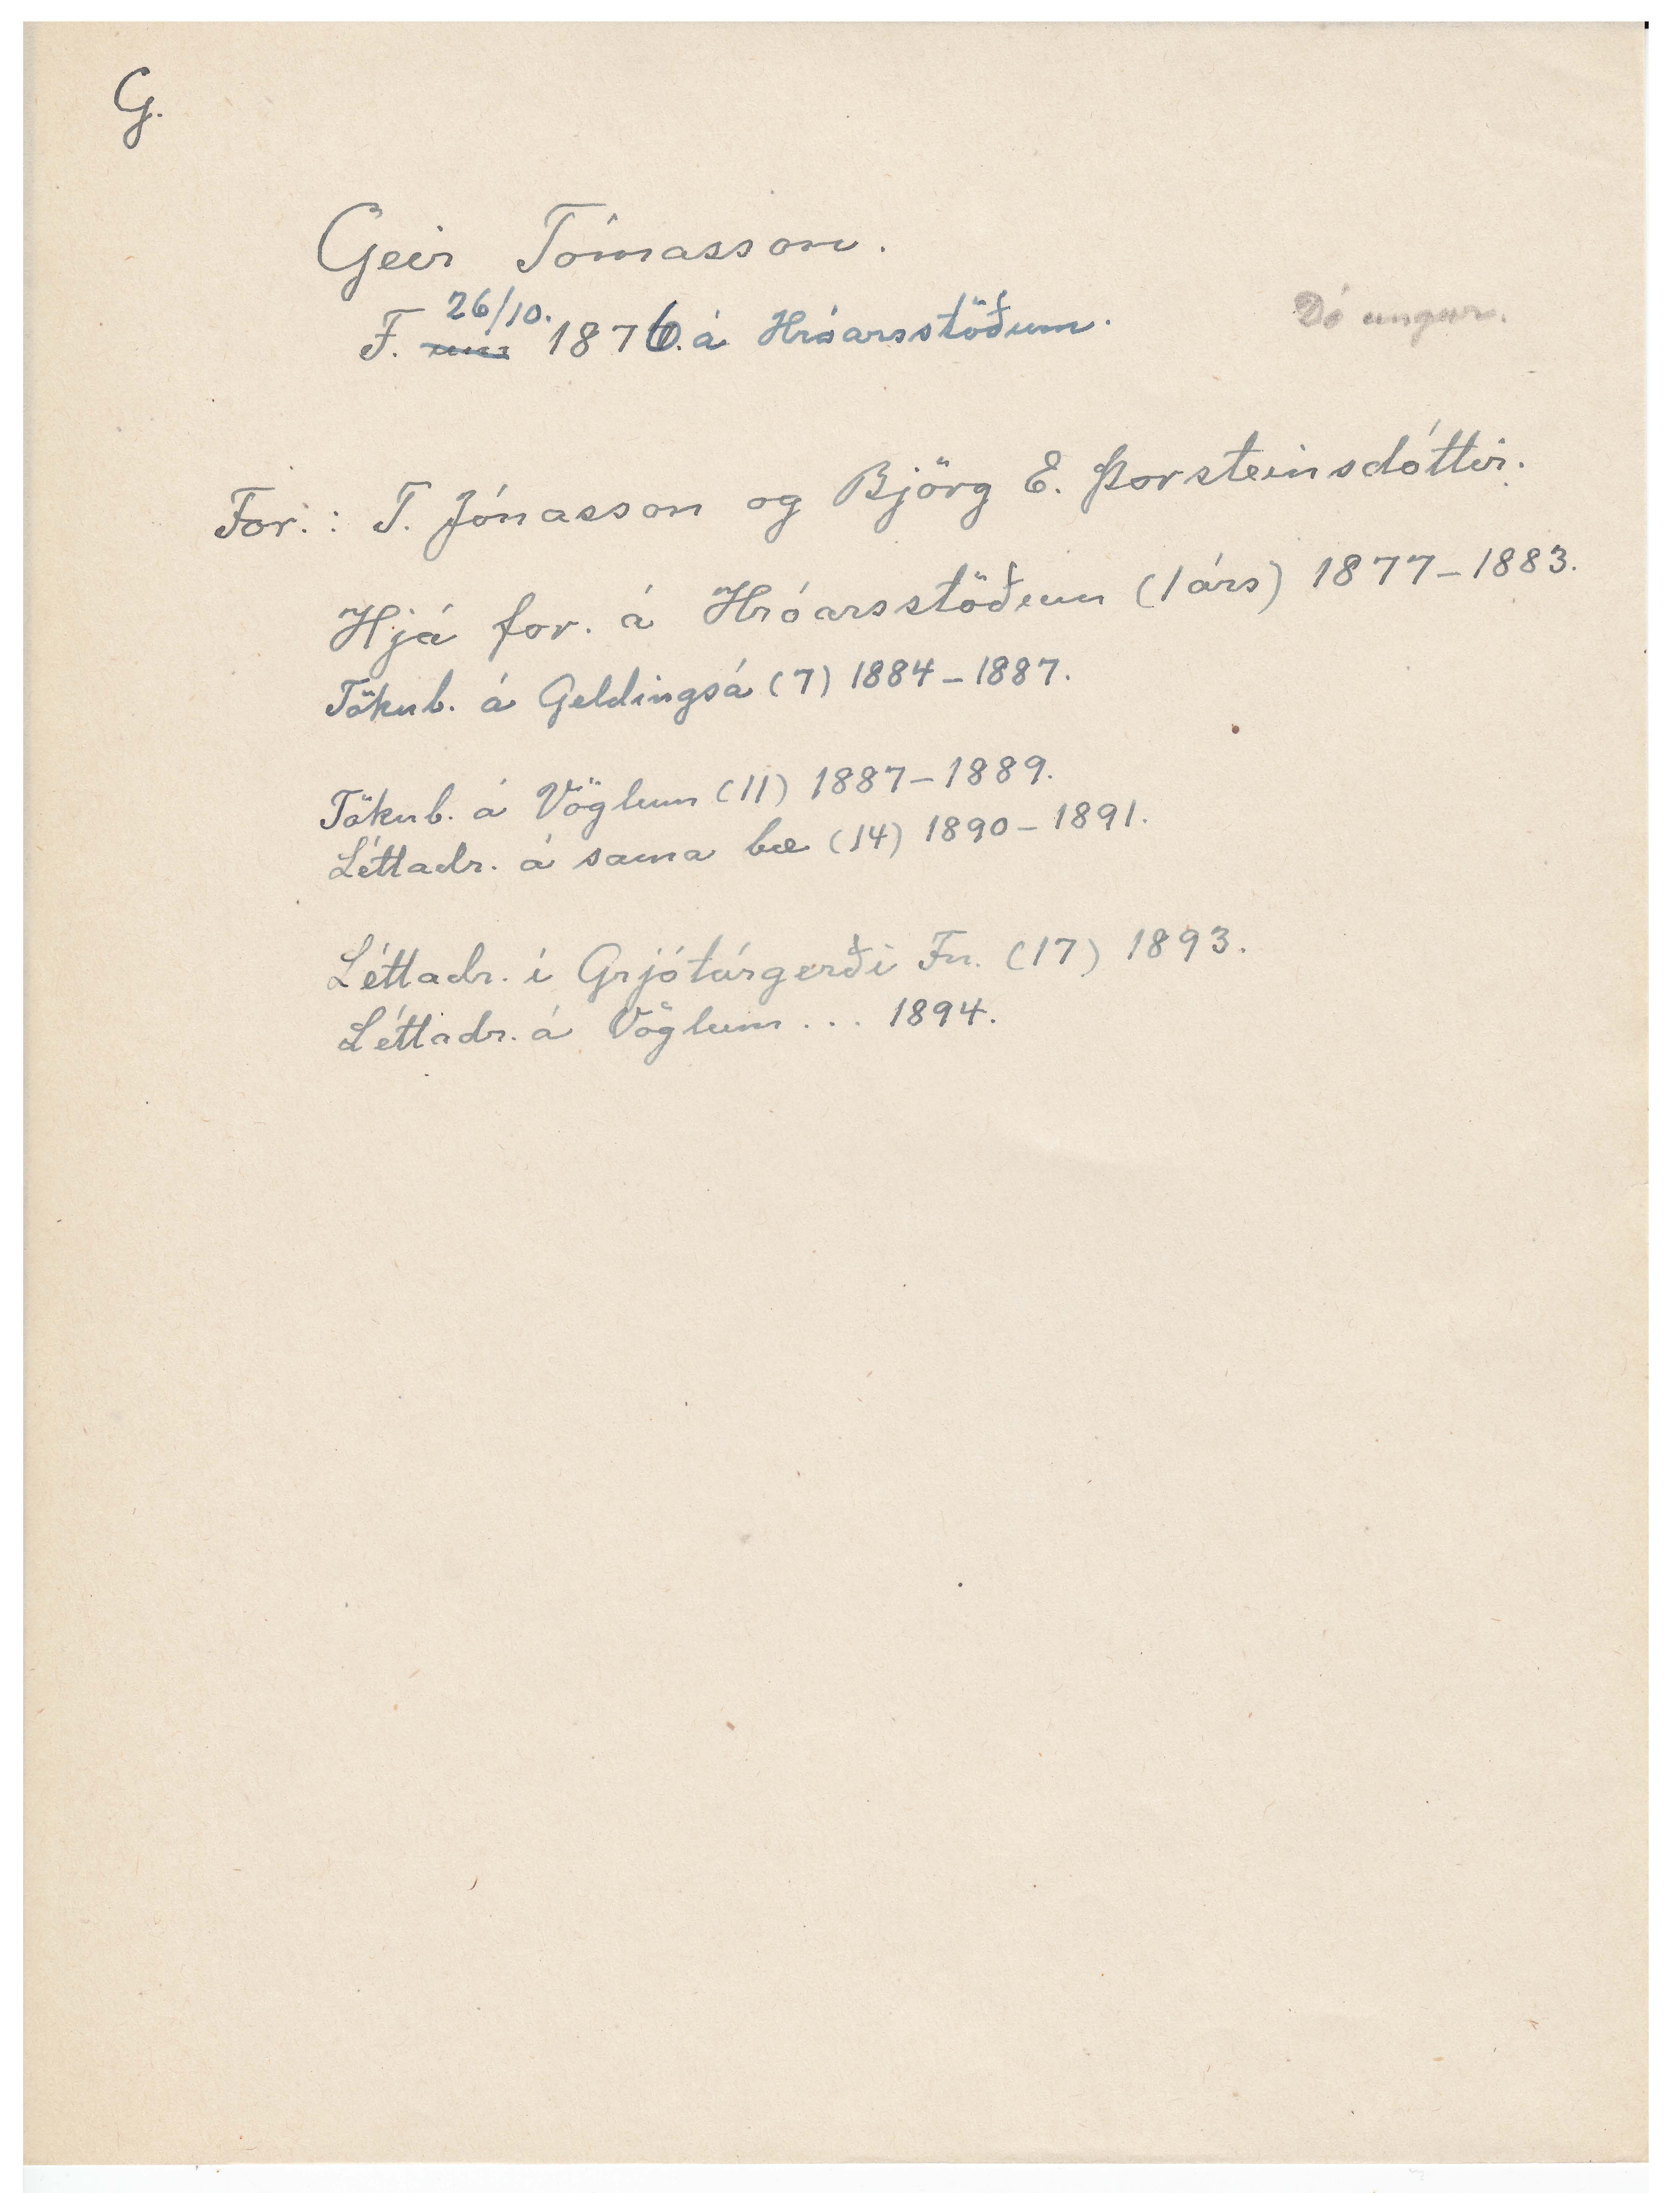 G.
Geir Tómasson.
F. 26/10. 1876. á Hróarsstöðum.
Dó ungur.
For.: T. Jónasson og Björg E. Þorsteinsdóttir.
Hjá for. á Hróarsstöðum (1 árs) 1877-1883.
Tökub. á Geldingsá (7) 1884-1887.
Tökub. á Vöglum (11) 1887-1889.
Léttadr. á sama bæ (14) 1890-1891.
Léttadr. í Grjótárgerði Fn. (17) 1893.
Léttadr. á Vöglum ... 1894.